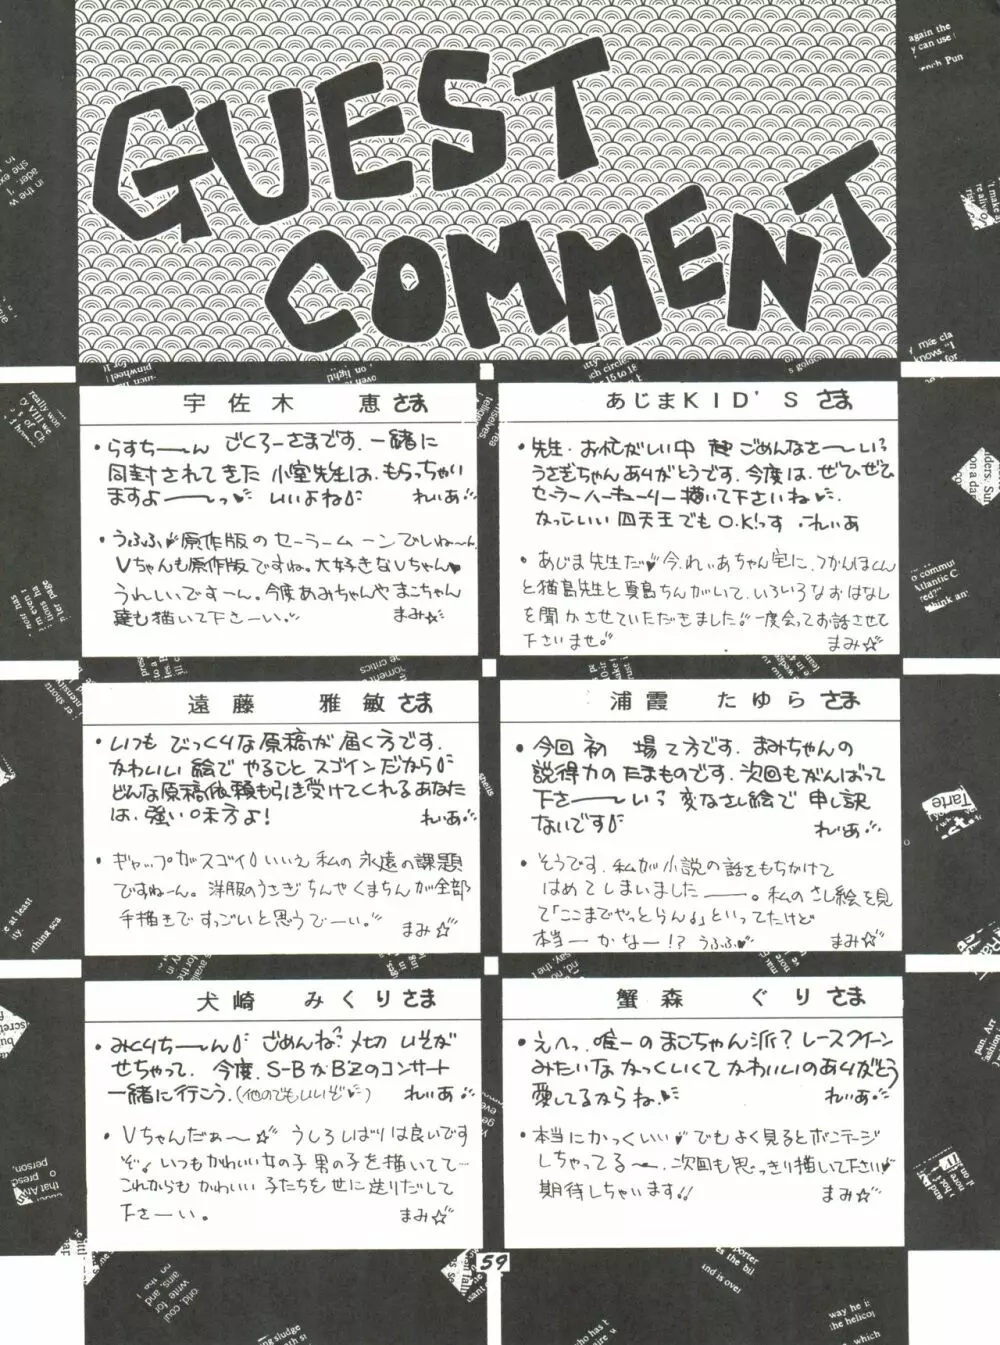 GUEST
COMMENT
宇佐木 恵さま
・らすちーーん ごくろーさまです。一緒に
同封されてきた 小室先生は、もらっちゃい
ますよーーっ いいよね れいあ
・うふふ♥原作版のセーラームーンでしね〜ん。
Vちゃんも原作版ですね。大好きなVちゃん♥
うれしいですーん。今度あみちゃんやまこちゃん
達も描いて下さーい。 まみ☆
あじまKID'Sさま
・先生・お忙がしい中 ごめんなさーーい
うさぎちゃんありがとうです。今度は、ぜひぜひ
セーラーマーキュリー描いて下さいね
かっこいい 四天王でもO.K!っす れいあ
・あじま先生だ♥今、れいあちゃん宅に、つかんほくん
と猫島先生と真島ちんがいて、いろいろなおはなし
を聞かさせていただきました 一度会ってお話させて
下さいませ まみ☆
遠藤 雅敏さま
・いつも びっくりな原稿が届く方です。
かわいい絵で やること スゴインだから
どんな原稿依頼も引き受けてくれるあなた
は、強い味方よ! れいあ
・ギャップがスゴイ いいえ 私の永遠の課題
ですね〜ん。洋服のうさぎちんやくまちんが全部
手描きですっごいと思うでーい。 まみ☆
浦霞 たゆらさま
・今回初 場て方です。まみちゃんの
説得力のたまものです。次回もがんばって
下さーーい 変なさし絵で 申し訳
ないです れいあ
・そうです。私が小説の話をもちかけて
はめてしまいましたーー。私のさし絵を見
て「ここまでやっとらん」といってたけど
本当ーかなー!? うふふ♥ まみ☆
犬崎 みくりさま
・みくりちーーん ごめんね メセカ いそが
せちゃって、今度、S-BかBZのコンサート
一緒に行こう。(他のでもいいぞ) れいあ
・Vちゃんだぁ〜☆ うしろしばりは良いです
ぞ いつもかわいい女の子男の子を描いてて…
これからも かわいい子たちを世に送りだして
下さーい。 まみ☆
蟹森 ぐりさま
・えへっ 唯一のまこちゃん派? レースクイーン
みたいな かっくいくて かわいいの ありがとう
愛してるからね れいあ
・本当にかっくいい♥でもよく見るとボンテージ
しちゃってる〜、次回も思いっきり描いて下さい♥
期待しちゃいます!! まみ☆
59